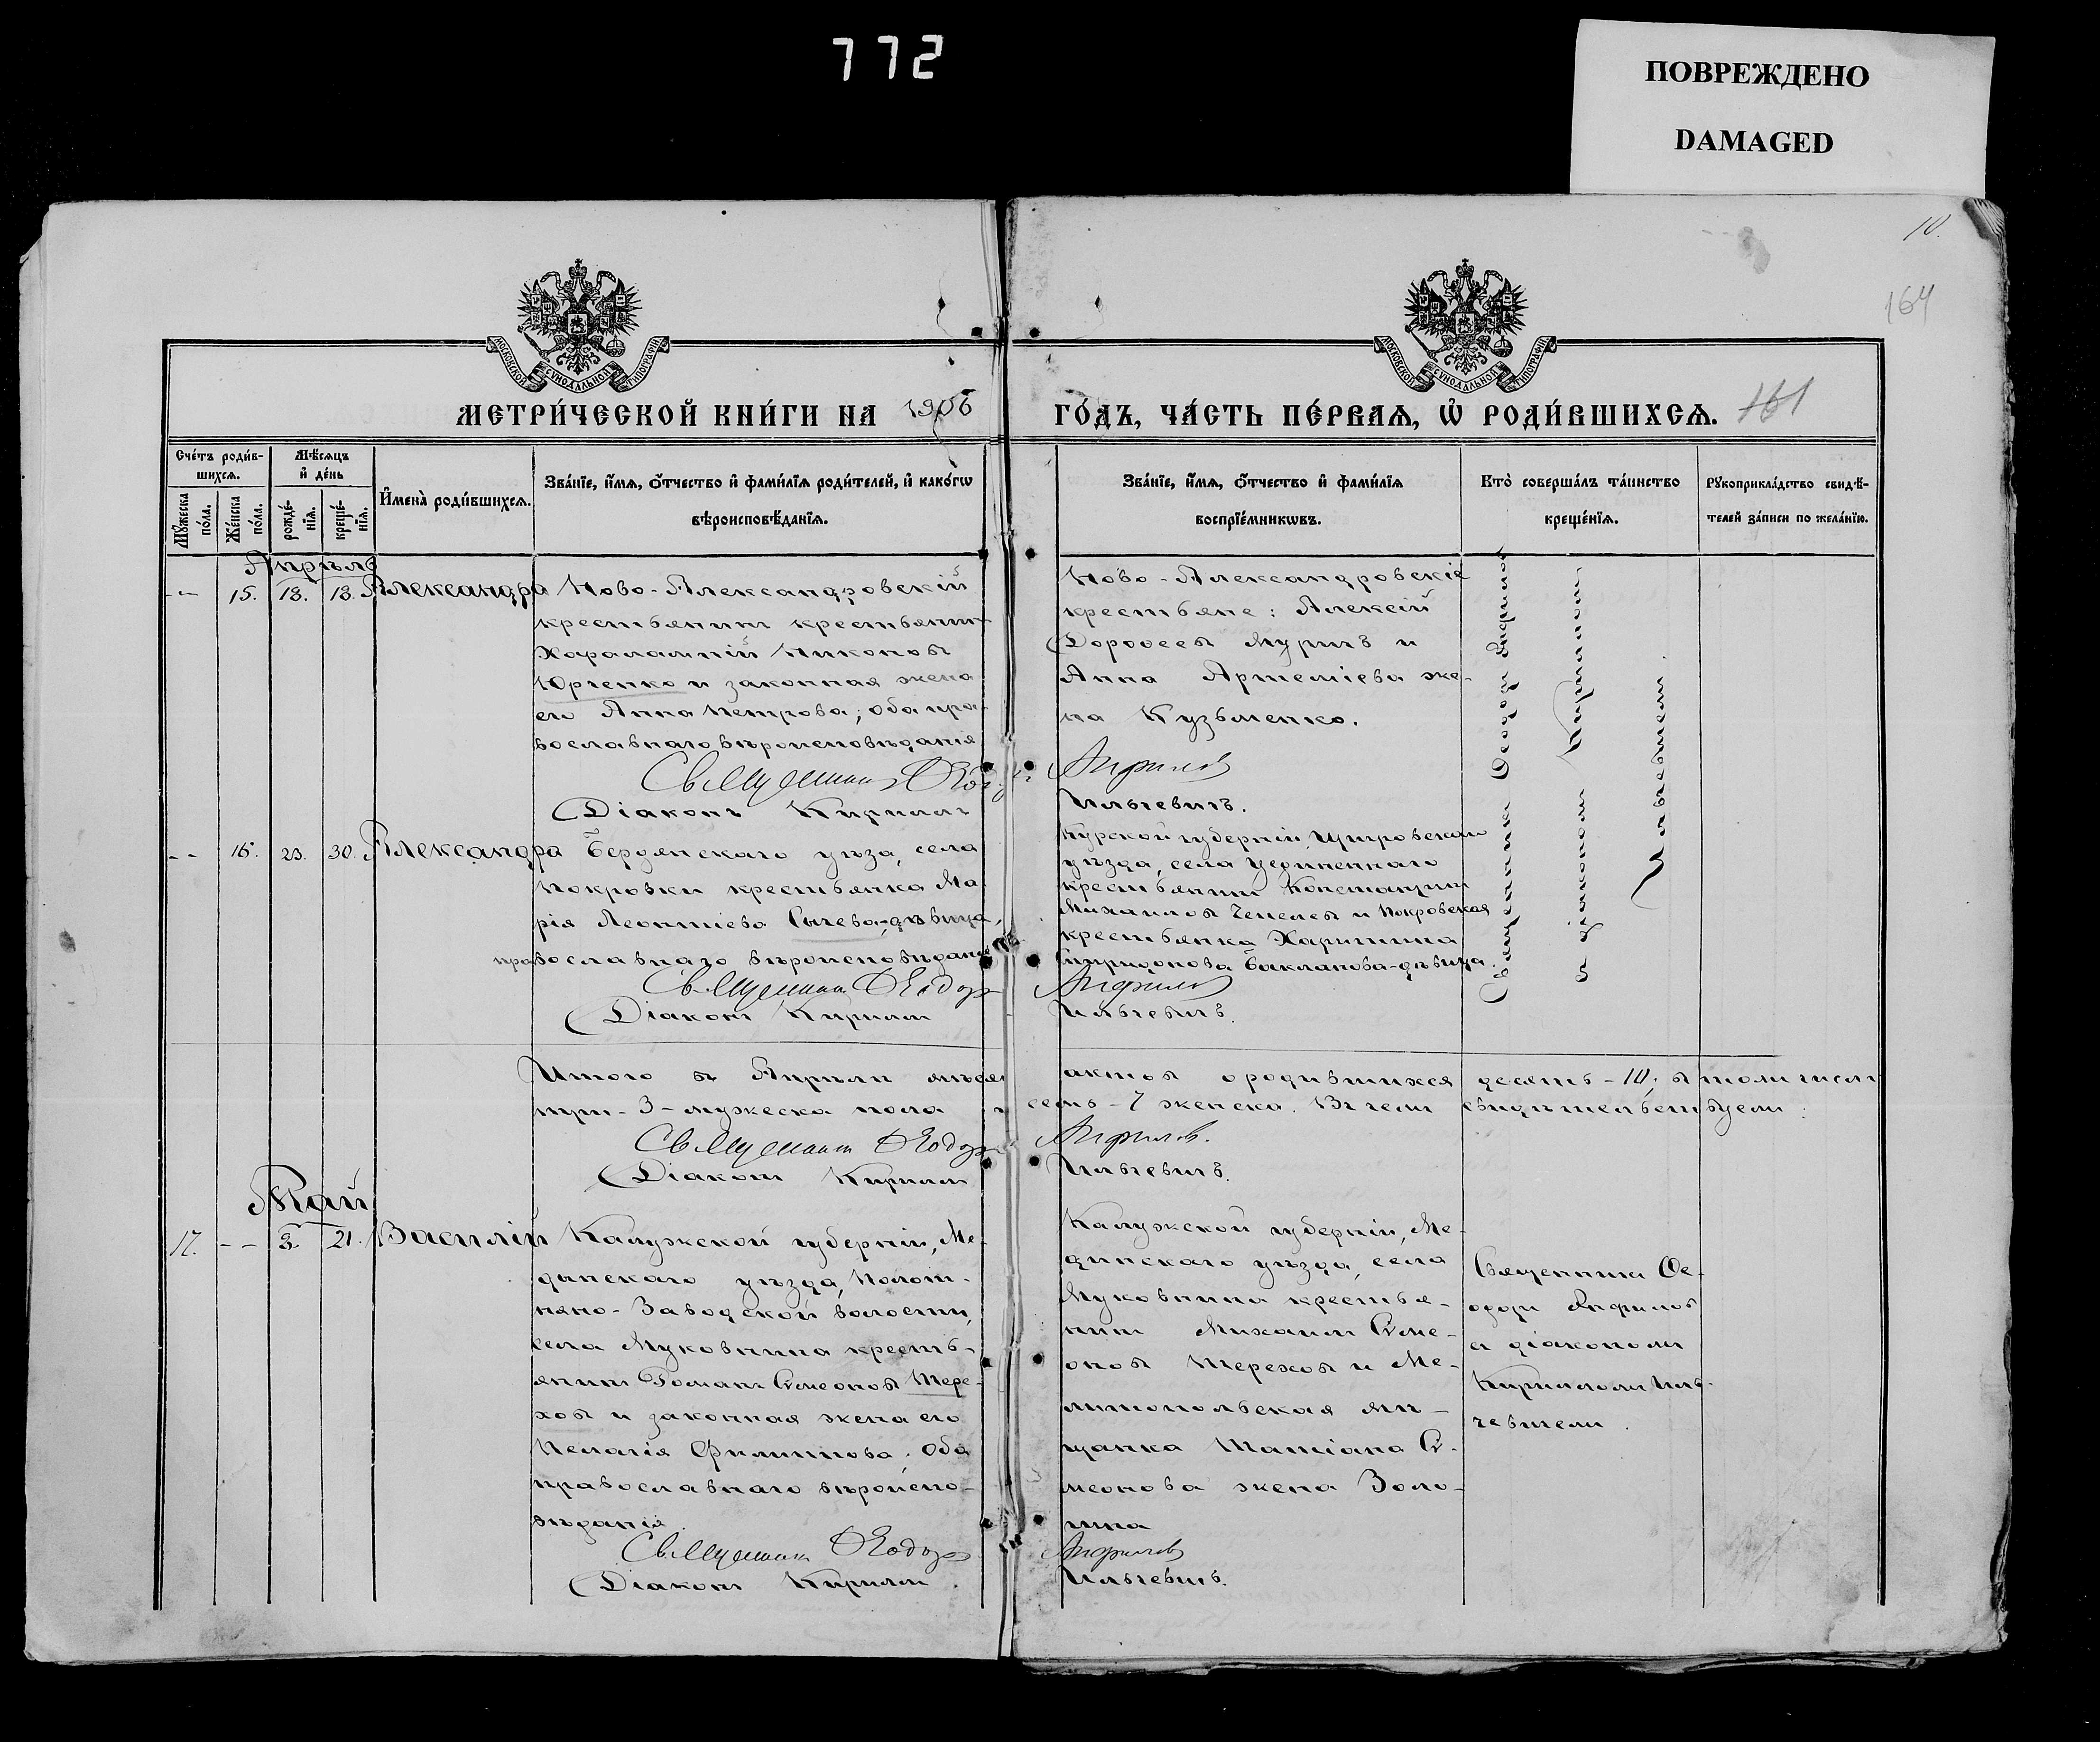 772
ПОВРЕЖДЕНО
DAMAGED
10.
164
МОСКОВСКОЙ СѴНОДАЛЬНОЙ ТИПОГРАФІИ
МОСКОВСКОЙ СѴНОДАЛЬНОЙ ТИПОГРАФІИ
МЕТРИ́ЧЕСКОЙ КНИ́ГИ НА 1906 ГО́ДЪ, ЧА́СТЬ ПЕ́РВАѦ, Ѡ҆ РОДИ́ВШИХСѦ. 161
Сче́тъ роди́в-
шихсѧ.
Мѣ́сѧцъ
и҆ де́нь
Мꙋ́жеска
по́ла.
Же́нска
по́ла.
рожде́-
нїѧ.
креще́-
нїѧ.
И҆мена̀ роди́вшихсѧ.
Зва́нїе, и҆́мѧ, ѻ҆́тчество и҆ фами́лїѧ роди́телей, и҆ како́гѡ
вѣроисповѣ́данїѧ.
Зва́нїе, и҆́мѧ, ѻ҆́тчество и҆ фами́лїѧ
воспрїе́мникѡвъ.
Кто̀ соверша́лъ та́инство
креще́нїѧ.
Рꙋкоприкла́дство свидѣ́-
телей за́писи по жела́нїю.
Апрѣль
-- 15. 18. 18. Александра
Ново-Александровскій
крестьянинъ крестьянинъ
Харалампій Никоновъ
Юрченко и законная жена
его Анна Петрова; оба пра-
вославнаго вѣроисповѣданія
Священникъ Ѳеодоръ
Діаконъ Кириллъ
Ново-Александровскіе
крестьяне: Алексій
Дороѳеевъ Муричъ и
Анна Артеміева же-
на Кузьменко.
Анфиловъ
Ильчевичъ.
Священникъ Ѳеодоръ Анфиловъ
съ діакономъ Кирилломъ
Ильчевичемъ.
-- 16. 23. 30. Александра
Бердянскаго уѣзда, села
Покровки крестьянка Ма-
рія Леонтіева Сычева, дѣвица,
православнаго вѣроисповѣданія
Священникъ Ѳеодоръ
Діаконъ Кириллъ
Курской губерніи, Щигровскаго
уѣзда, села Уединеннаго
крестьянинъ Константинъ
Михаиловъ Чепелевъ и Покровская
крестьянка Харитина
Спиридонова Бакланова-дѣвица.
Анфиловъ
Ильчевичъ.
Итого въ Апрѣлѣ мѣсяцѣ актовъ о родившихся десять - 10; въ томъ числѣ
три - 3 - мужеска пола и семь - 7 женска. Въ чемъ свидѣтельствуемъ:
Священникъ Ѳеодоръ Анфиловъ.
Діаконъ Кириллъ Ильчевичъ.
Май
17. -- 3. 21. Василій
Калужской губерніи, Ме-
дынскаго уѣзда, Полот-
няно-Заводской волости,
села Муковнина кресть-
янинъ Романъ Симеоновъ Тере-
ховъ и законная жена его
Пелагія Филиппова; оба
православнаго вѣроиспо-
вѣданія.
Священникъ Ѳеодоръ
Діаконъ Кириллъ
Калужской губерніи, Ме-
дынскаго уѣзда, села
Муковнина крестья-
нинъ Михаилъ Симе-
оновъ Тереховъ и Ме-
литопольская мѣ-
щанка Татіана Си-
меонова жена Золо-
Анфиловъ
Ильчевичъ.
Священникъ Ѳе-
одоръ Анфиловъ
съ діакономъ
Кирилломъ Иль-
чевичемъ.